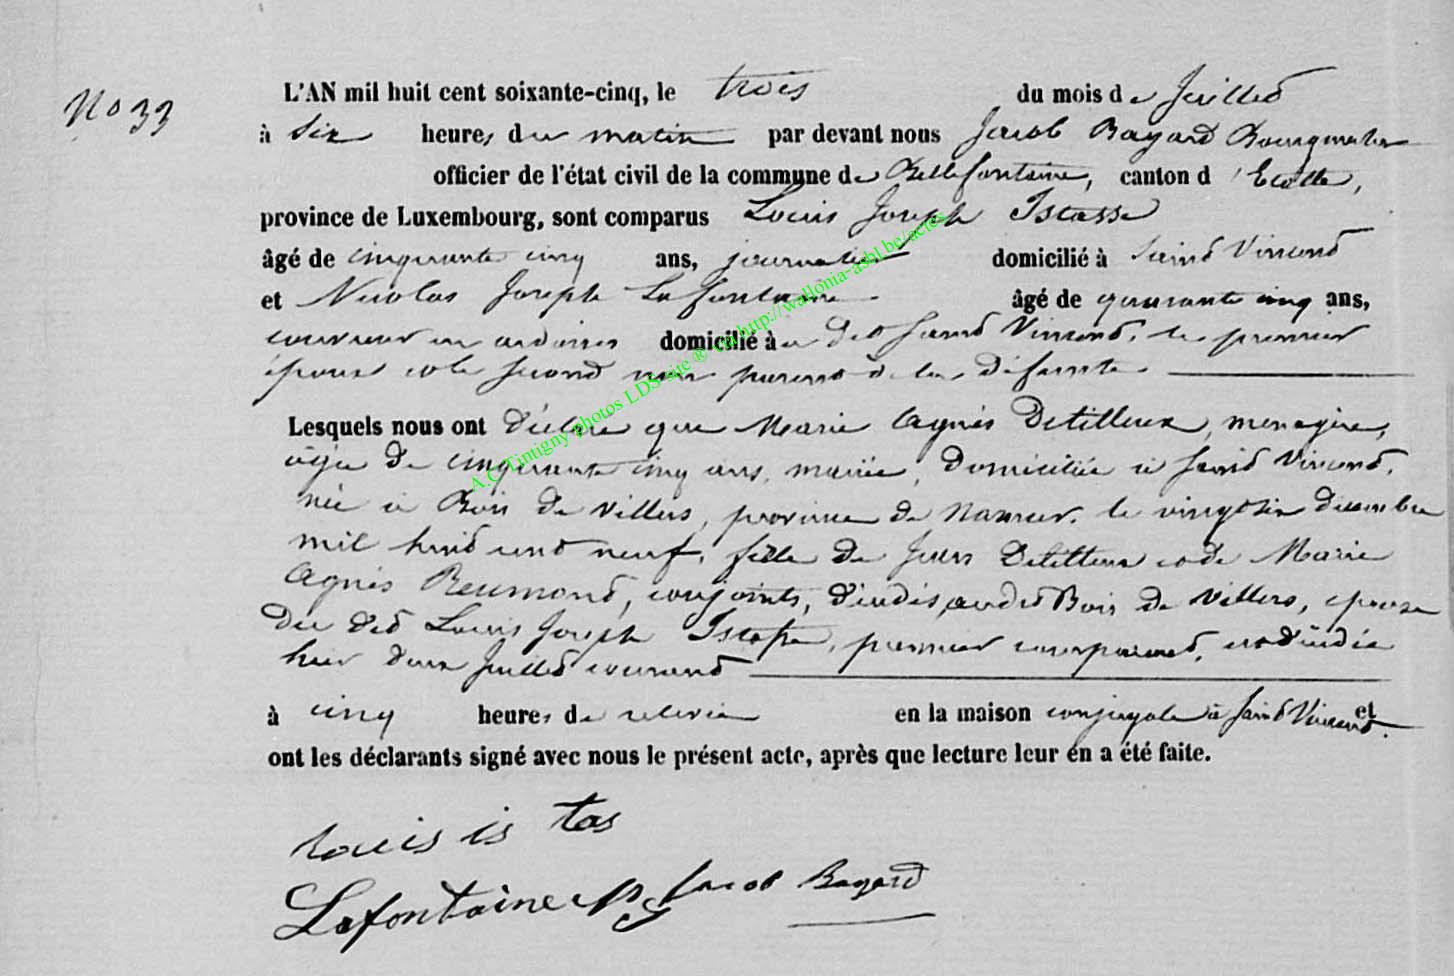 No 33
L'AN mil huit cent soixante-cinq, le trois du mois de Juillet
à six heures du matin par devant nous Jacob Bagard Bourgmestre
officier de l'état civil de la commune de Bellefontaine, canton d'Etalle,
province de Luxembourg, sont comparus Louis Joseph Istasse
âgé de cinquante cinq ans, journalier domicilié à Saint Vincent
et Nicolas Joseph Lafontaine âgé de quarante cinq ans,
couvreur en ardoises domicilié à au dit Saint Vincent, le premier
époux et le second non parent de la défunte
Lesquels nous ont déclaré que Marie Agnès Detilleux, menagère,
agée de cinquante cinq ans, mariée, domiciliée à Saint Vincent,
née à Bois de Villers, province de Namur, le vingt six decembre
mil huit cent neuf, fille de Jean Detilleux et de Marie
Agnès Reumont, conjoints, décédés audit Bois de Villers, epouse
du dit Louis Joseph Istasse, premier comparant, est décédée
hier deux Juillet courant
à cinq heures de relevée en la maison conjugale à Saint Vincent et
ont les déclarants signé avec nous le présent acte, après que lecture leur en a été faite.
Louis is tas
Lafontaine Jacob Bagard
A.C. Tintigny photos LDS site ® http://wallonia-asbl.be/actes